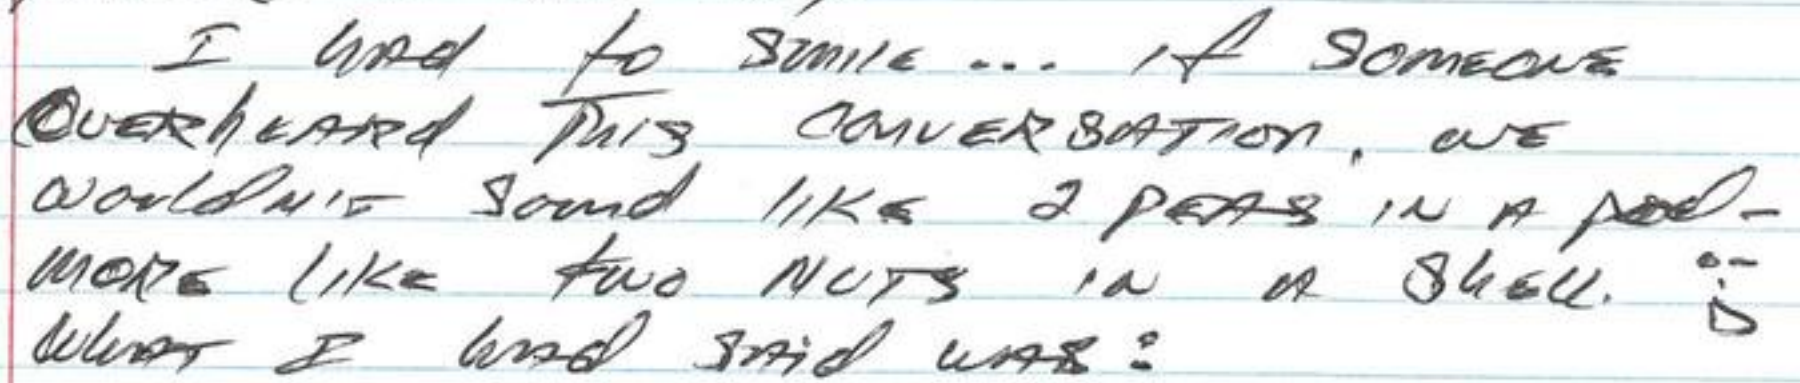 I had to smile... if someone
overheard this conversation, we
wouldn't sound like 2 peas in a pod-
more like two nuts in a shell.
What I had said was: